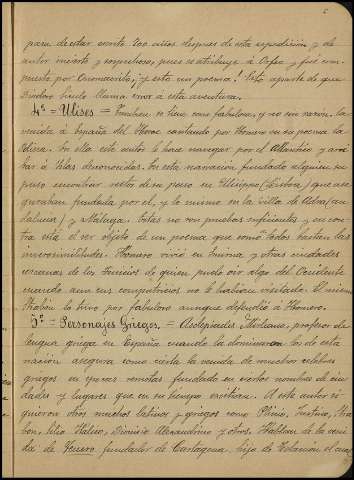 para de estar escrito 700 años despues de esta espedición y de
autor incierto y sospechoso, pues se atribuye á Orfeo y fué com-
puesto por Onomacrito, ¡y esta un poema! Esto aparte de que
Diodoro Siculo llama error á esta aventura.
4º = Ulises = Tambien se tiene como fabulosa, y no sin razón, la
venida á España del Heroe cantando por Homero en su poema la
Odisea. En ella este autor le hace navegar por el Atlantico y arri-
bar á Islas desconocidas. En esta narración fundado alguien su-
puso encontrar restos de su paso en Ulisipo (Lisboa) que ase-
guraban fundada por el, y lo mismo en la villa de Adra (An-
dalucia) y Málaga. Estas no son pruebas suficientes y en con-
tra está el ser objeto de un poema que como todos hartan las
inverosimilitudes. Homero vivió en Esmirna y otras ciudades
cercanas de los fenicios de quien pudo oir algo del Occidente
cuando aun sus compatricios no le habian visitado. El mismo
Strabón lo tuvo por fabuloso aunque defendió á Homero.
5º = Personajes Griegos. = Asclepiades Mirleano, profesor de
lengua griega en España cuando la dominaron los de esta
nación asegura como cierta la venida de muchos celebres
griegos en epocas remotas fundado en ciertos nombres de ciu-
dades y lugares que en su tiempo existian. A este autor si-
guieron otros muchos latinos y griegos como Plinio, Justino, Stra-
bon, Silio Italico, Dionisio Alexandrino y otros. Hablan de la veni-
da de Teucro fundador de Cartagena, hijo de Telamón el cual